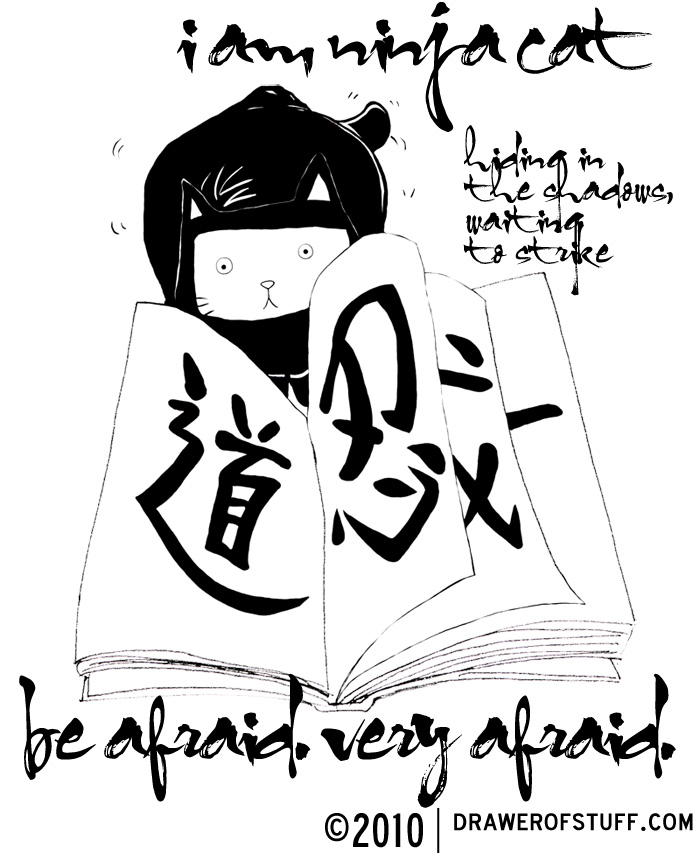 i am ninja cat
hiding in
the shadows,
waiting
to strike
道 忍
be afraid. very afraid.
©2010 | DRAWEROFSTUFF.COM